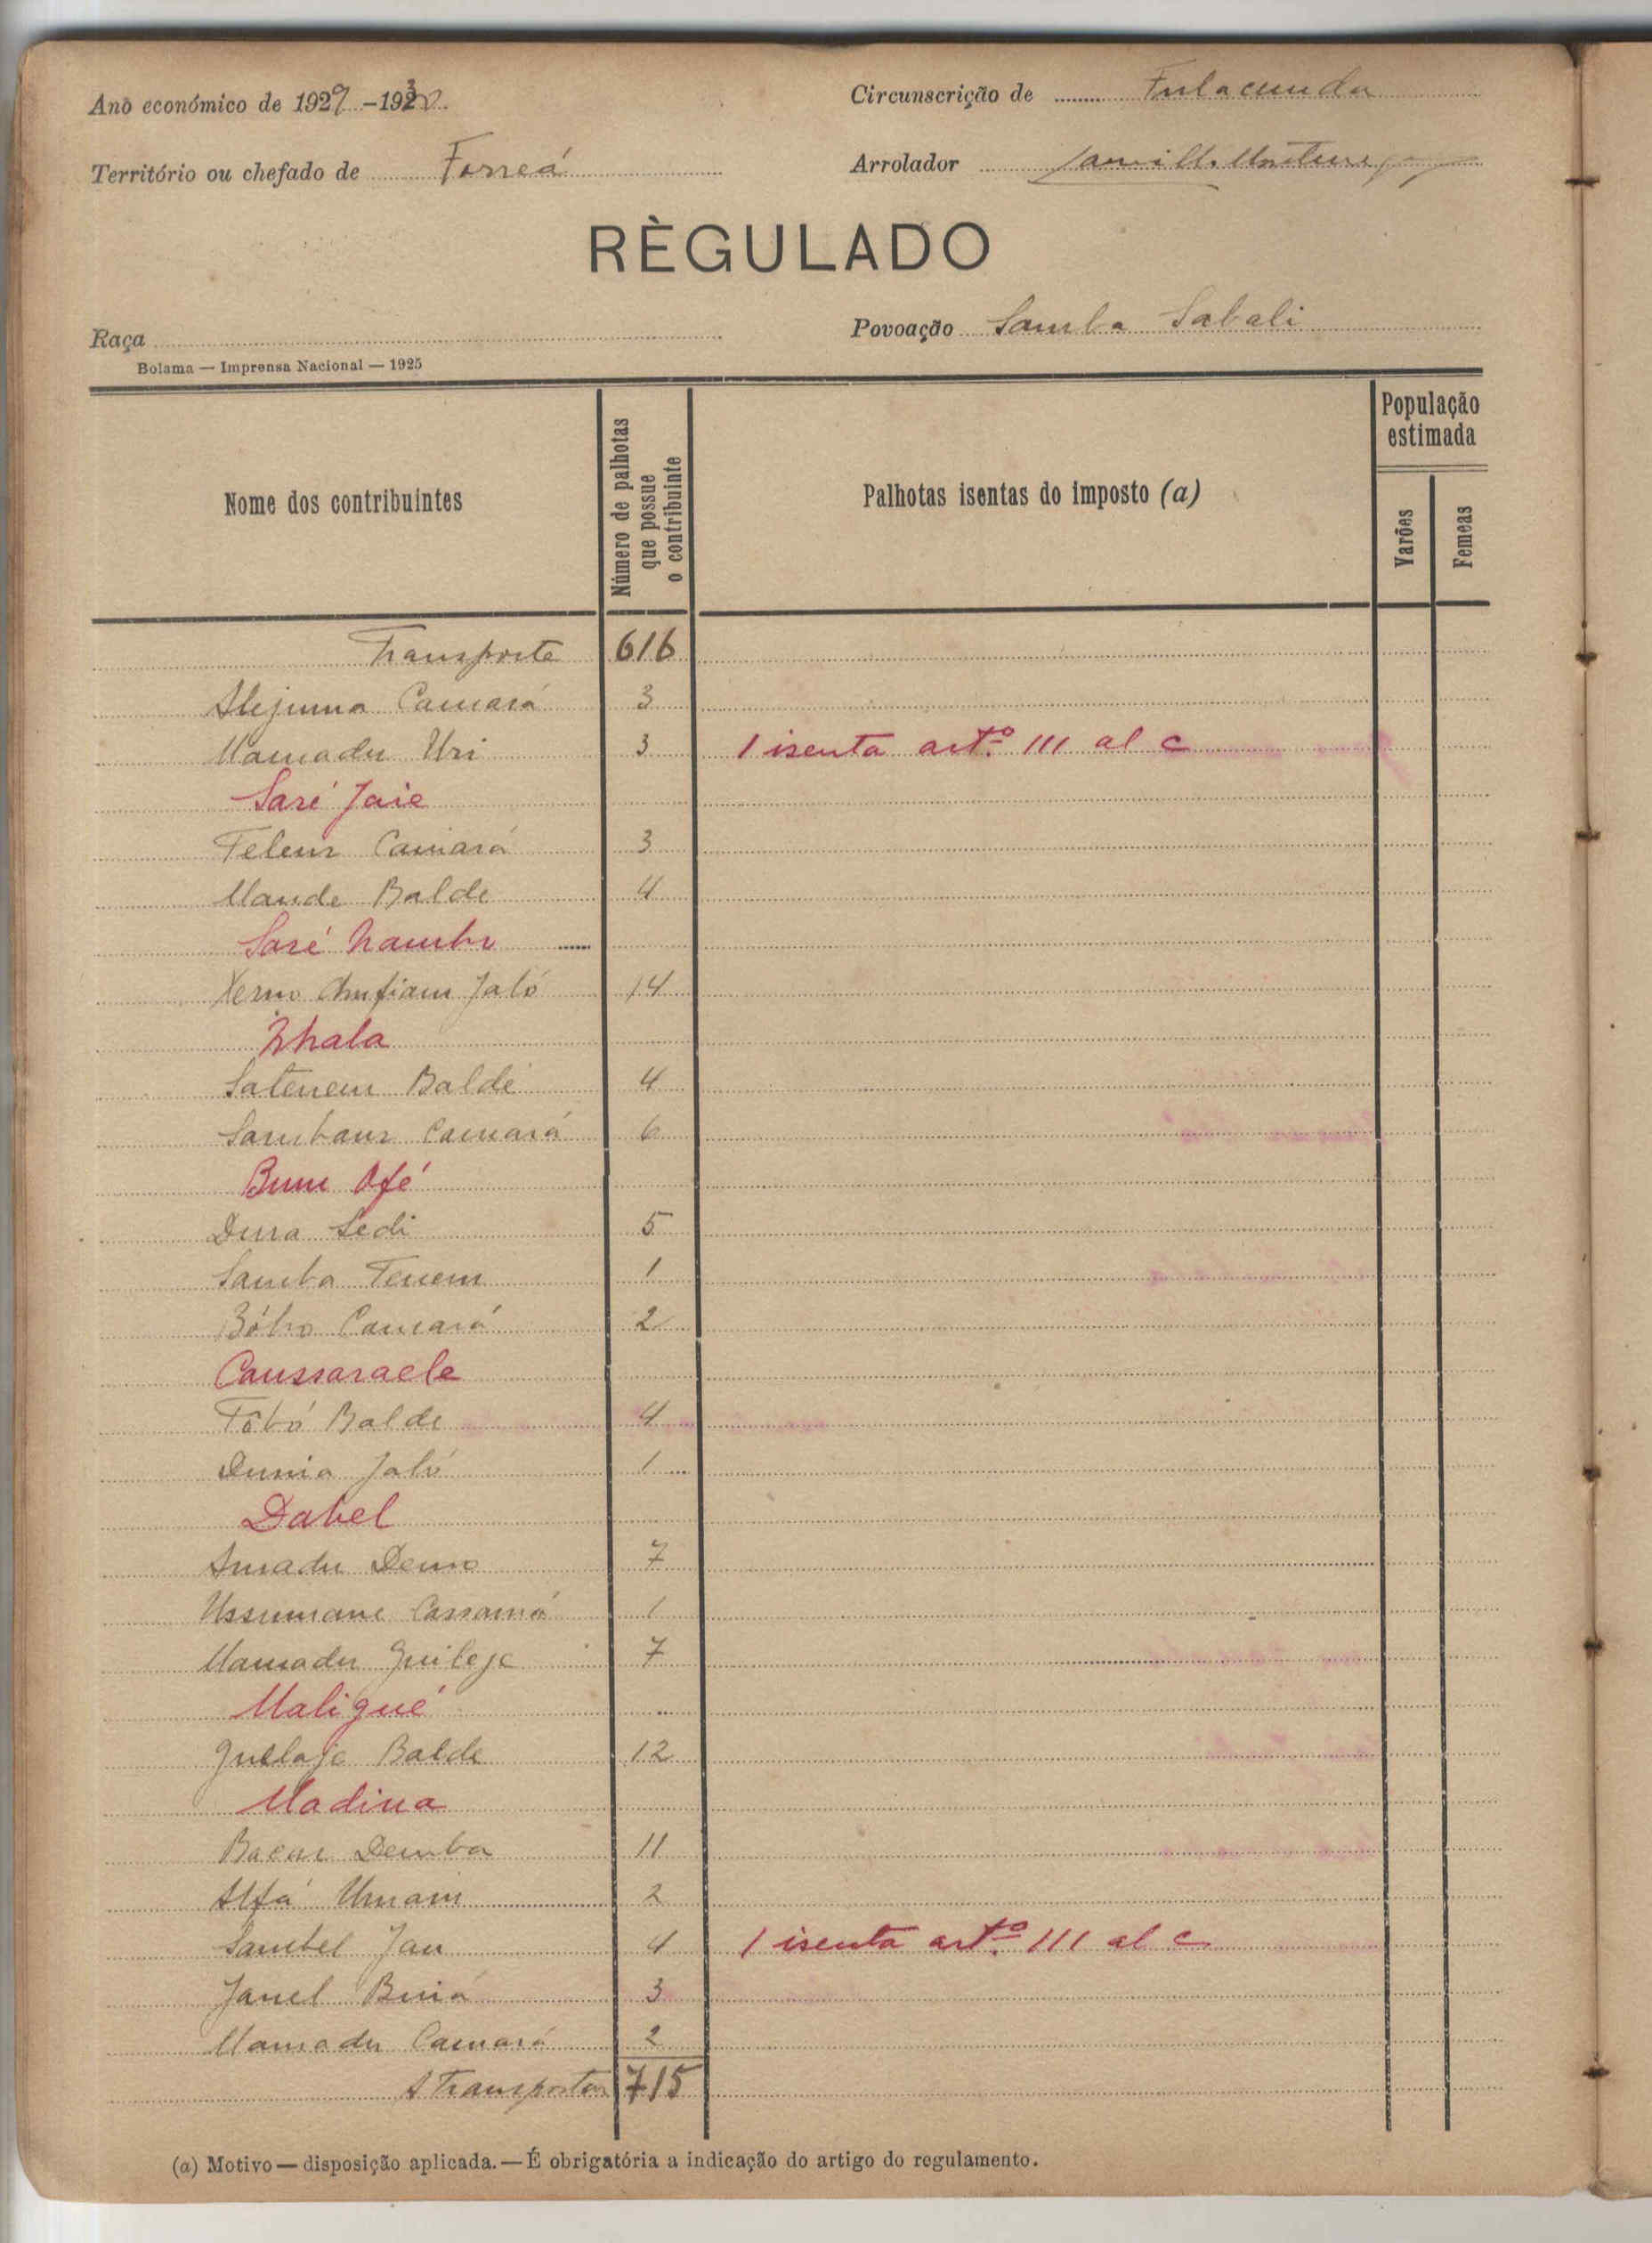 Ano económico de 1929 -1930.
Circunscrição de Fulacunda
Território ou chefado de Forreá
Arrolador
RÈGULADO
Raça
Povoação Samba Sabali
Bolama — Imprensa Nacional — 1925
Nome dos contribuintes
Número de palhotas que possue o contribuinte
Palhotas isentas do imposto (a)
População estimada
Varões
Femeas
Transporte 616
Camará 3
Mamadu Uri 3 1 isenta art.º 111 al c
Saré Jaie
Camará 3
Mande Balde 4
Saré
Jaló 14
Balde 4
Camará 6
Bum Ofé
Dura Sedi 5
Samba Tenem 1
Bóbo Camará 2
Caussaraele
Tôbó Balde 4
Dunia Jaló 1
Dabel
Amadu Demo 7
Ussumane Cassamá 1
Mamadu Guileje 7
Maligué
Balde 12
Madina
Bacar Demba 11
Alfá Umaru 2
Sambel Jau 4 1 isenta art.º 111 al c
Janel 3
Mamadu Camará 2
A Transportar 715
(a) Motivo — disposição aplicada. — É obrigatória a indicação do artigo do regulamento.